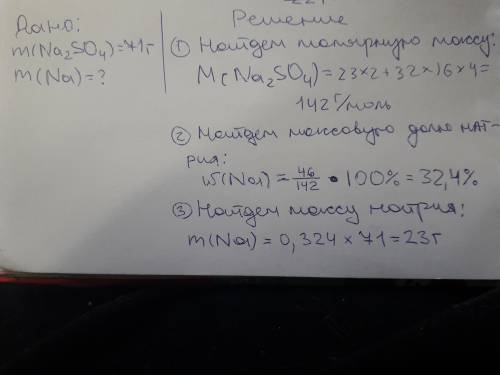 Дано:
m(Na₂SO₄)=71г
m(Na)=?
Решение
① Найдем молярную массу:
M(Na₂SO₄)=23×2+32×16×4=
142г/моль
② Найдем массовую долю нат-
рия:
w(Na)=46/142 • 100%=32,4%
③ Найдем массу натрия:
m(Na)=0,324×71=23г